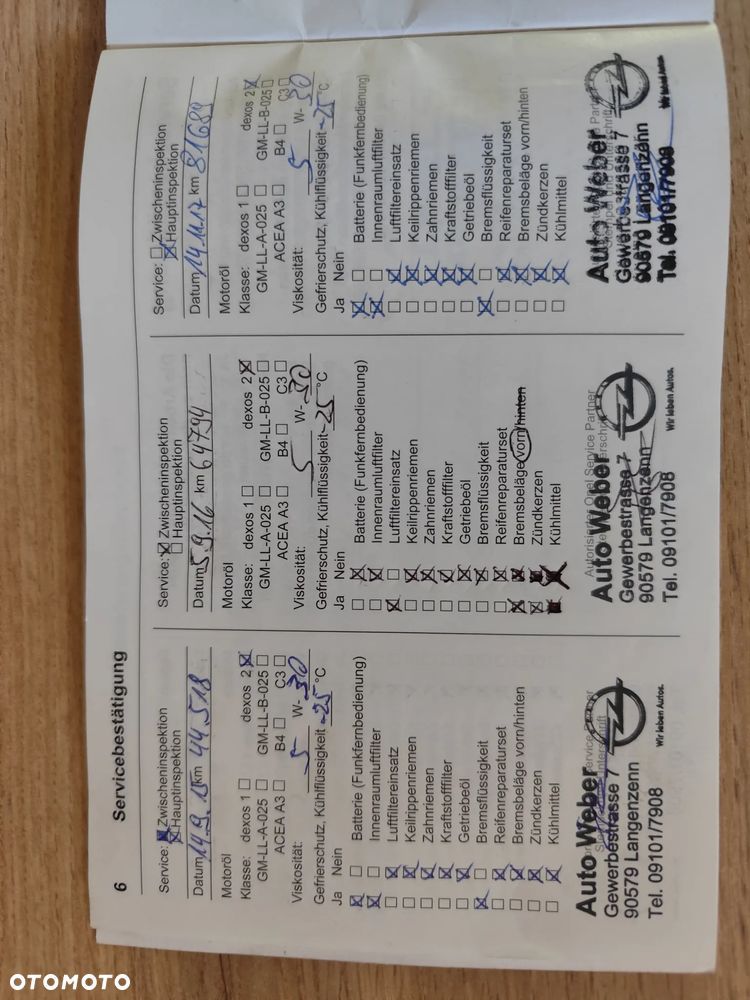 6 Servicebestätigung
Service: Zwischeninspektion
Hauptinspektion
Datum 14.9.15 km 44.518
Motoröl
Klasse: dexos 1 dexos 2
GM-LL-A-025 GM-LL-B-025
ACEA A3 B4 C3
Viskosität: 5 W- 30
Gefrierschutz, Kühlflüssigkeit -25 °C
Ja Nein
Batterie (Funkfernbedienung)
Innenraumluftfilter
Luftfiltereinsatz
Keilrippenriemen
Zahnriemen
Kraftstofffilter
Getriebeöl
Bremsflüssigkeit
Reifenreparaturset
Bremsbeläge vorn/hinten
Zündkerzen
Kühlmittel
Auto Weber
Gewerbestrasse 7
90579 Langenzenn
Tel. 09101/7908
Wir leben Autos.
Service: Zwischeninspektion
Hauptinspektion
Datum 5.9.16 km 64794
Motoröl
Klasse: dexos 1 dexos 2
GM-LL-A-025 GM-LL-B-025
ACEA A3 B4 C3
Viskosität: 5 W- 30
Gefrierschutz, Kühlflüssigkeit -25 °C
Ja Nein
Batterie (Funkfernbedienung)
Innenraumluftfilter
Luftfiltereinsatz
Keilrippenriemen
Zahnriemen
Kraftstofffilter
Getriebeöl
Bremsflüssigkeit
Reifenreparaturset
Bremsbeläge vorn/hinten
Zündkerzen
Kühlmittel
Autorisierter Opel Service Partner
Auto Weber
Gewerbestrasse 7
90579 Langenzenn
Tel. 09101/7908
Wir leben Autos.
Service: Zwischeninspektion
Hauptinspektion
Datum 14.11.17 km 81689
Motoröl
Klasse: dexos 1 dexos 2
GM-LL-A-025 GM-LL-B-025
ACEA A3 B4 C3
Viskosität: 5 W- 30
Gefrierschutz, Kühlflüssigkeit -25 °C
Ja Nein
Batterie (Funkfernbedienung)
Innenraumluftfilter
Luftfiltereinsatz
Keilrippenriemen
Zahnriemen
Kraftstofffilter
Getriebeöl
Bremsflüssigkeit
Reifenreparaturset
Bremsbeläge vorn/hinten
Zündkerzen
Kühlmittel
Auto Weber
Gewerbestrasse 7
90579 Langenzenn
Tel. 09101/7908
Wir leben Autos.
OTOMOTO